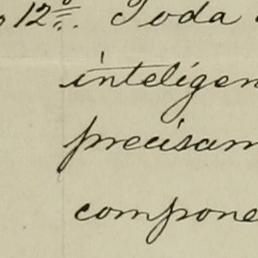 o 12º. Toda
inteligen
precisam
compone